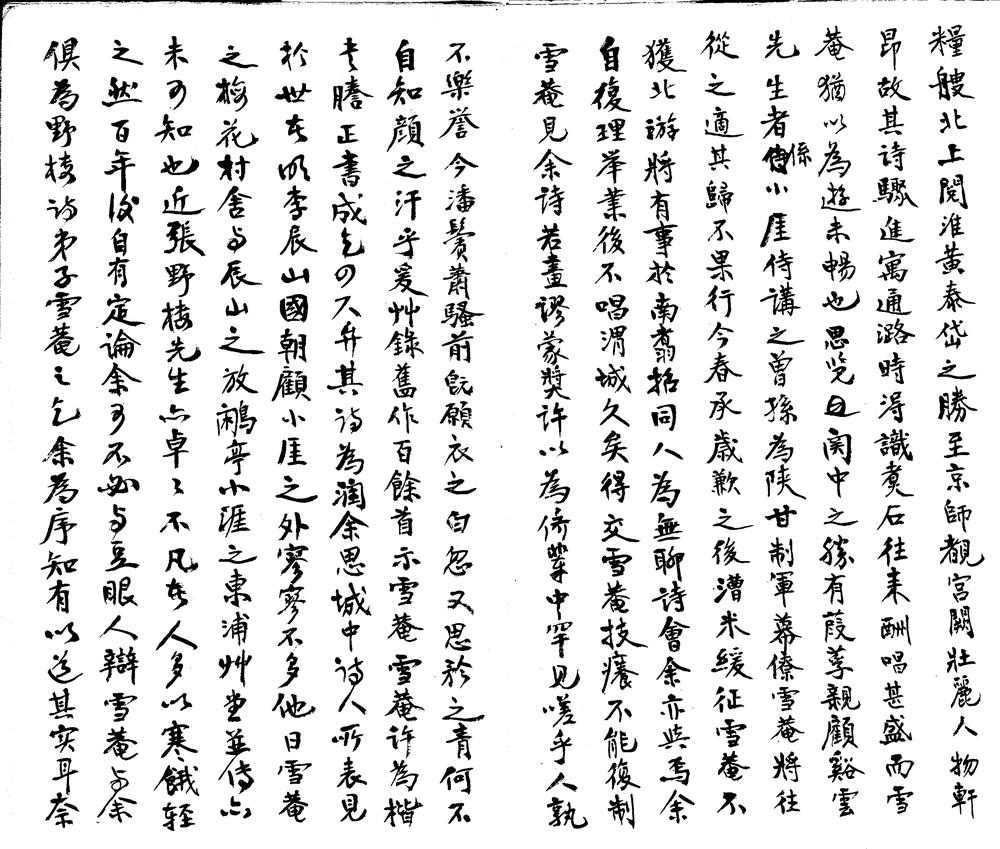 糧艘北上閱淮黃泰岱之勝至京師觀宮闕壯麗人物軒
昂故其詩驟進寓通潞時得識煑石往来酬唱甚盛而雪
菴猶以為遊未暢也思览關中之勝有葭莩親顧谿雲
先生者係小厓侍講之曾孫為陝甘制軍幕僚雪菴將往
從之適其歸不果行今春承歲歉之後漕米緩征雪菴不
獲北遊將有事於南翥招同人為無聊詩會余亦與焉余
自復理举業後不唱渭城久矣得交雪菴技癢不能復制
雪菴見余詩若畫謬蒙獎許以為儕輩中罕見嗟乎人孰
不樂譽今潘鬢蕭騷前既願衣之白忽又思衿之青何不
自知顏之汗乎爰艸錄舊作百餘首示雪菴雪菴许為楷
書謄正書成乞の人弁其诗為潤余思城中诗人所表見
於世在明李辰山國朝顧小厓之外寥寥不多他日雪菴
之梅花村舍与辰山之放鷴亭小涯之東浦艸堂並传亦
未可知也近張野楼先生亦卓々不凡在人多以寒餓轻
之然百年後自有定論余可不必与豆眼人辯雪菴与余
俱為野楼诗弟子雪菴之乞余為序知有以道其实耳奈